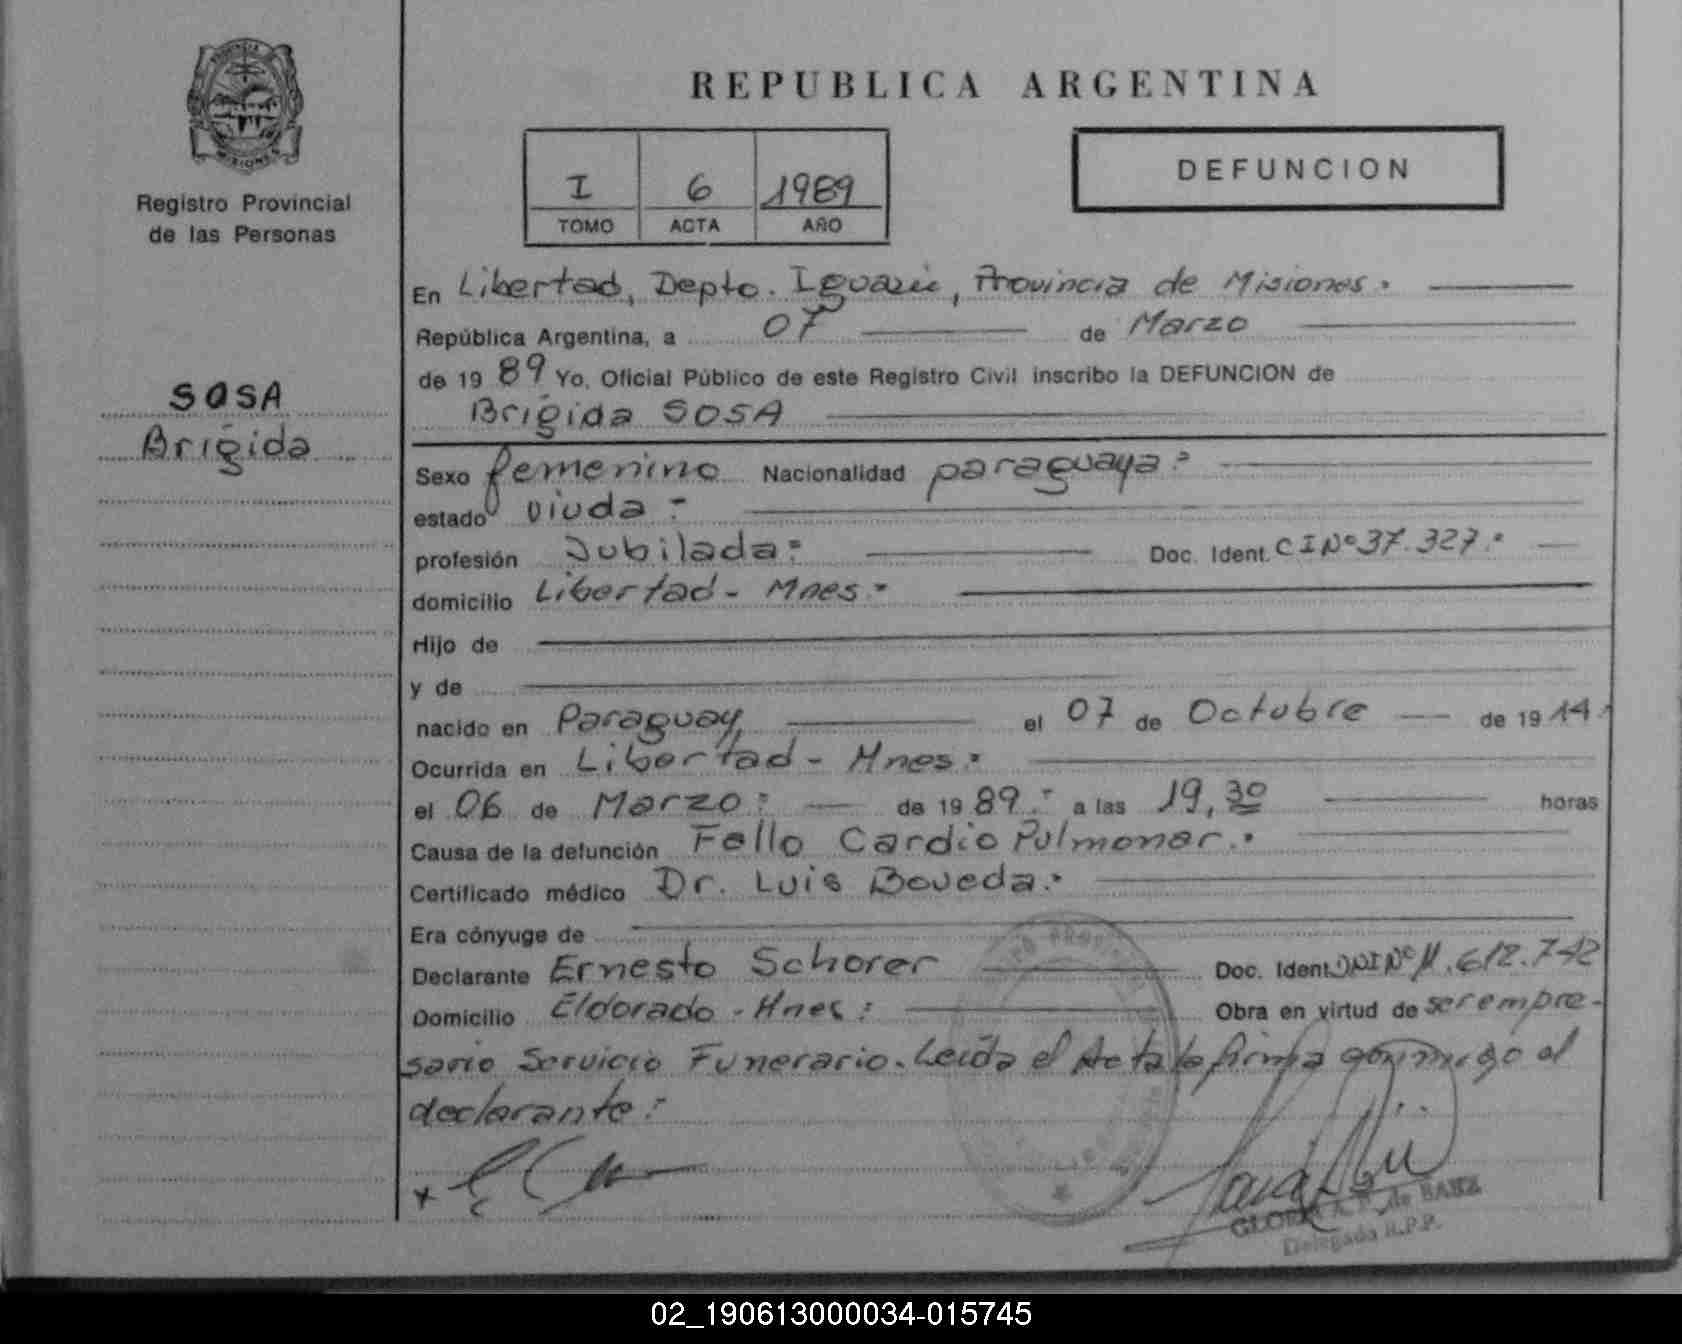 PROVINCIA
MISIONES
Registro Provincial
de las Personas
SOSA
Brígida
REPUBLICA ARGENTINA
I 6 1989
TOMO ACTA AÑO
DEFUNCION
En Libertad, Depto. Iguazú, Provincia de Misiones.
República Argentina, a 07 de Marzo
de 1989 Yo, Oficial Público de este Registro Civil inscribo la DEFUNCION de
Brígida SOSA
Sexo femenino Nacionalidad paraguaya
estado viuda
profesión Jubilada Doc. Ident. CI Nº 37.327.
domicilio Libertad - Mnes.
Hijo de
y de
nacido en Paraguay, el 07 de Octubre de 1914.
Ocurrida en Libertad - Mnes.
el 06 de Marzo de 1989. a las 19,30 horas
Causa de la defunción Fallo Cardio Pulmonar.
Certificado médico Dr. Luis Boveda.
Era cónyuge de
Declarante Ernesto Schorer Doc. Ident. DNI Nº 11.612.742
Domicilio Eldorado - Mnes: Obra en virtud de ser empre-
sario Servicio Funerario. Leída el Acta la firma conmigo el
declarante:
GLORIA A. F. de BAEZ
Delegada R.P.P.
02_190613000034-015745